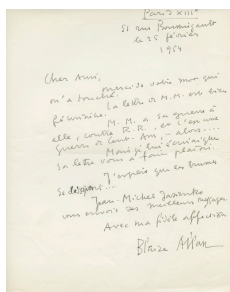 Paris XIIIe
51 rue Boussingault
le 25 février
1964
Cher Ami,
merci de votre mot qui
m'a touché.
La lettre de M. M. est bien
féminine.
M. M. a sa guerre à
elle, contre R. R., et l'on une
guerre de Cent-Ans, - alors....
Mais si lui
sa lettre vous a fait plaisir.
J'espère que les brumes
se dissipent...
Jean-Michel
vous envoie ses meilleurs messages.
Avec ma fidèle affection
Blaise Allan